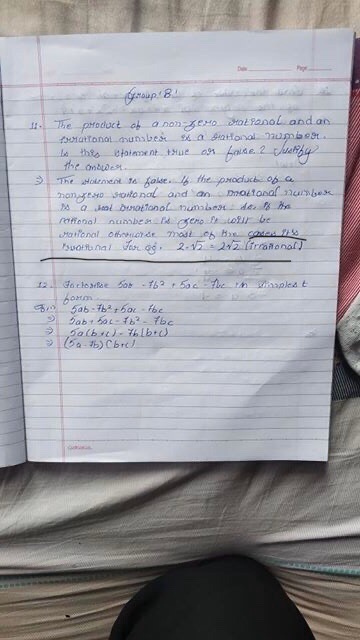 Date Page
Group 'B'
11. The product of a non-zero rational and an
irrational number is a rational number.
Is this statement true or false? Justify
the answer.
⇒ The statement is false. If the product of a
nonzero rational and an irrational number
is a irrational number. i.e. if the
rational number is zero it will be
rational otherwise most of the cases it is
irrational For eg. 2-√2 = 2√2 [irrational]
12. Factorise 5ab - 7b² + 5ac - 7bc in simplest
form.
5ab - 7b² + 5ac - 7bc
⇒ 5ab + 5ac - 7b² - 7bc
⇒ 5a(b+c) - 7b(b+c)
⇒ (5a-7b)(b+c)